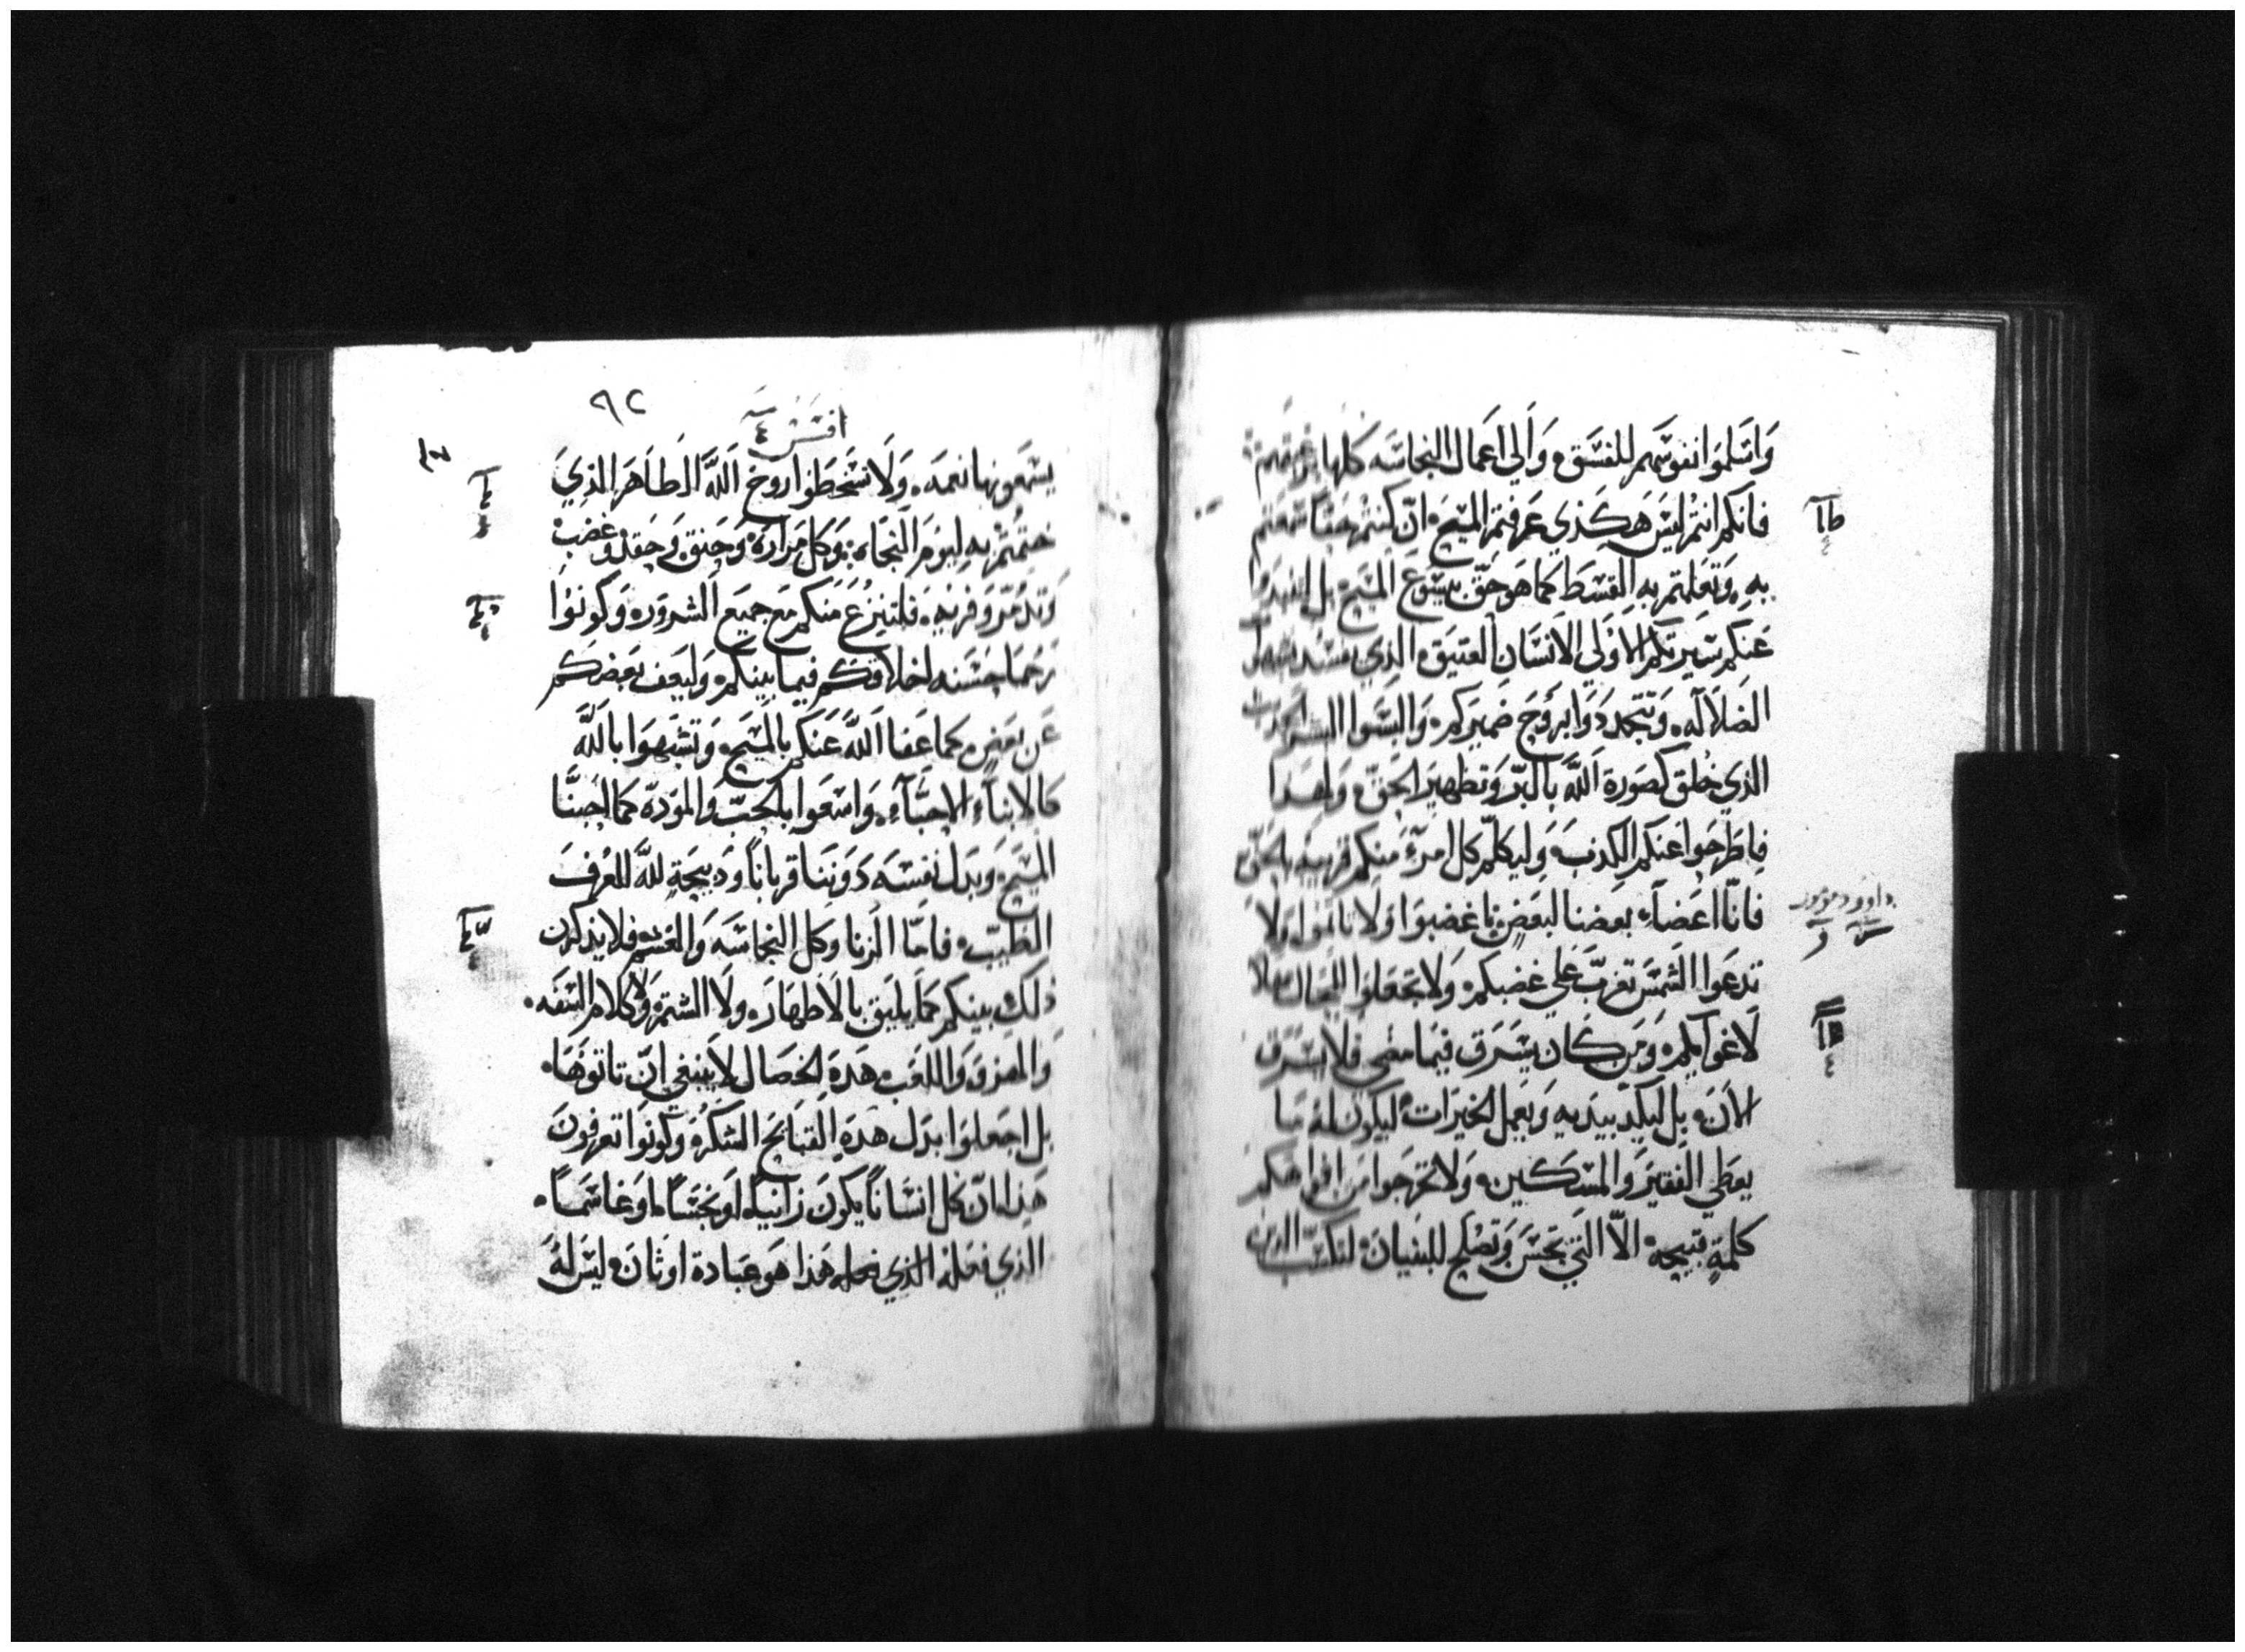 وَاسَلمَوا نفوسَهم للفسَق وَالي اعَمال النجاسَه كلها برغبتهم
فانكم انتم ليسَ هَكذي عَرفتم المسَيح ان كنتم حَقا سَمعتم
به وَتعَلمتم به القسَط كما هَو حَق بيسَوع المسَيح بل انبدوا
عَنكم سَيرتكم الاولي الانسَان العتيَق الذي يفسَد بشهوات
الضلاله وَتتجددوا بروح ضميركم وَالبسَوا البشر الجديد
الذي خلق كصَورة الله بالبر وَتطهير الحَق وَلهَدا
فاطرحَوا عَنكم الكدب وَليكلم كل امرء منكم قريبه بالحَق
فانا اعَضاء بعضنا لبعَض اغضبوَا وَلا تاثموا وَلا
تدعَوا الشمسَ تغرب عَلي غضبكم وَلا تجعَلوا للمحال سبيلا
لاغوآيكم وَمن كان يسَرق فيما مضي فلا يسَرق
الان بل ليكد بيديه وَيعَمل الخيرَات ليكون له مَا
يعطي الفقير وَالمسَكين وَلا تخرجَوا من افواهكم
كلمة قبيحه الا التي تحَسن وَتصَلح للبنيان لتكسَب الذين
داوود مزمور
٩٢
افسَسَ ٤
يسَمَعونها نعمَه وَلا تسَخطوا روح الله الطاهَر الذي
ختمتم به ليوم النجاه وَكل مَرارة وَحنق وَحقد وغضب
وَتدمر وَفريه فلتنزع مَنكم مَع جميَع الشرور وَكونوا
رحمَا حسَنه اخلاقكم فيما بينكم وَليعَف بعَضكم
عَن بعَض كما عَفا الله عَنكم بالمسَيح وَتشبهوَا بالله
كالابناء الاحبَآء وَاسَعَوا بالحب وَالمودة كما احبنا
المسَيح وَبدل نفسَه دَوننا قربانا وَدبيحَة لله للعَرف
الطيب فامَا الزنا وكل النجاسَه وَالغشم فلا يذكرن
ذلك بينكم كما يليق بالاطهارَ ولا الشتم وَلا كلام السَفه
وَالهزو وَاللعَب هَده الخصَال لا ينبغي ان تاتوهَا
بل اجعَلوا بدل هَده القبَائح الشكر وَكونوا تعَرفون
هَذا ان كل انسَانا يكون زانيا او نجسَا او غاشمَا
الذي فعَله الذي فعله هَذا هَو عبَادة اوثان ليسَ له